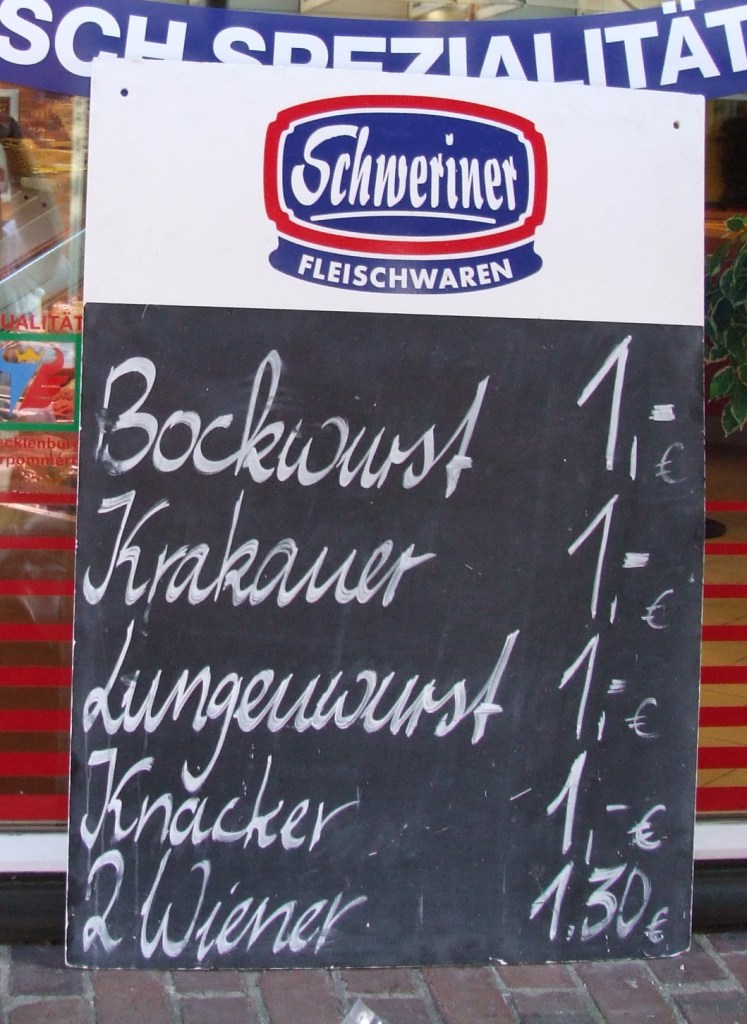 SCH SPEZIALITÄT
Schweriner
FLEISCHWAREN
UALITÄT
ecklenburg
rpommern
Bockwurst 1,= €
Krakauer 1,= €
Lungenwurst 1,= €
Knacker 1,- €
2 Wiener 1,30 €